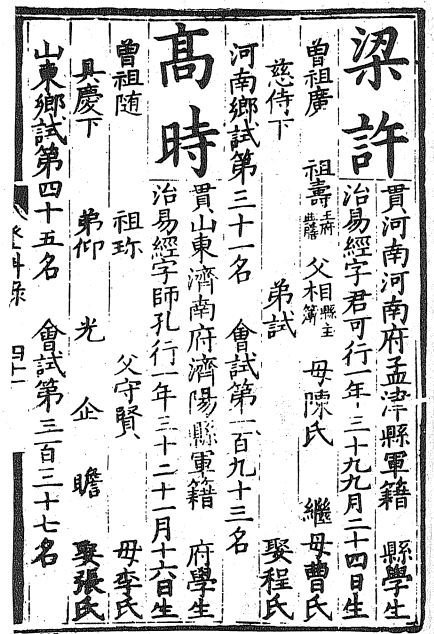 梁許
貫河南河南府孟津縣軍籍 縣學生
治易經字君可行一年三十九九月二十四日生
曾祖廣 祖壽 父相縣主簿 母陳氏 繼母曹氏
慈侍下 弟試 娶程氏
河南鄉試第三十一名 會試第一百九十三名
高時
貫山東濟南府濟陽縣軍籍 府學生
治易經字師孔行一年三十二十一月十六日生
曾祖隨 祖珎 父守賢 母李氏
具慶下 弟仰 光 企 瞻 娶張氏
山東鄉試第四十五名 會試第三百三十七名
登科錄 四十一